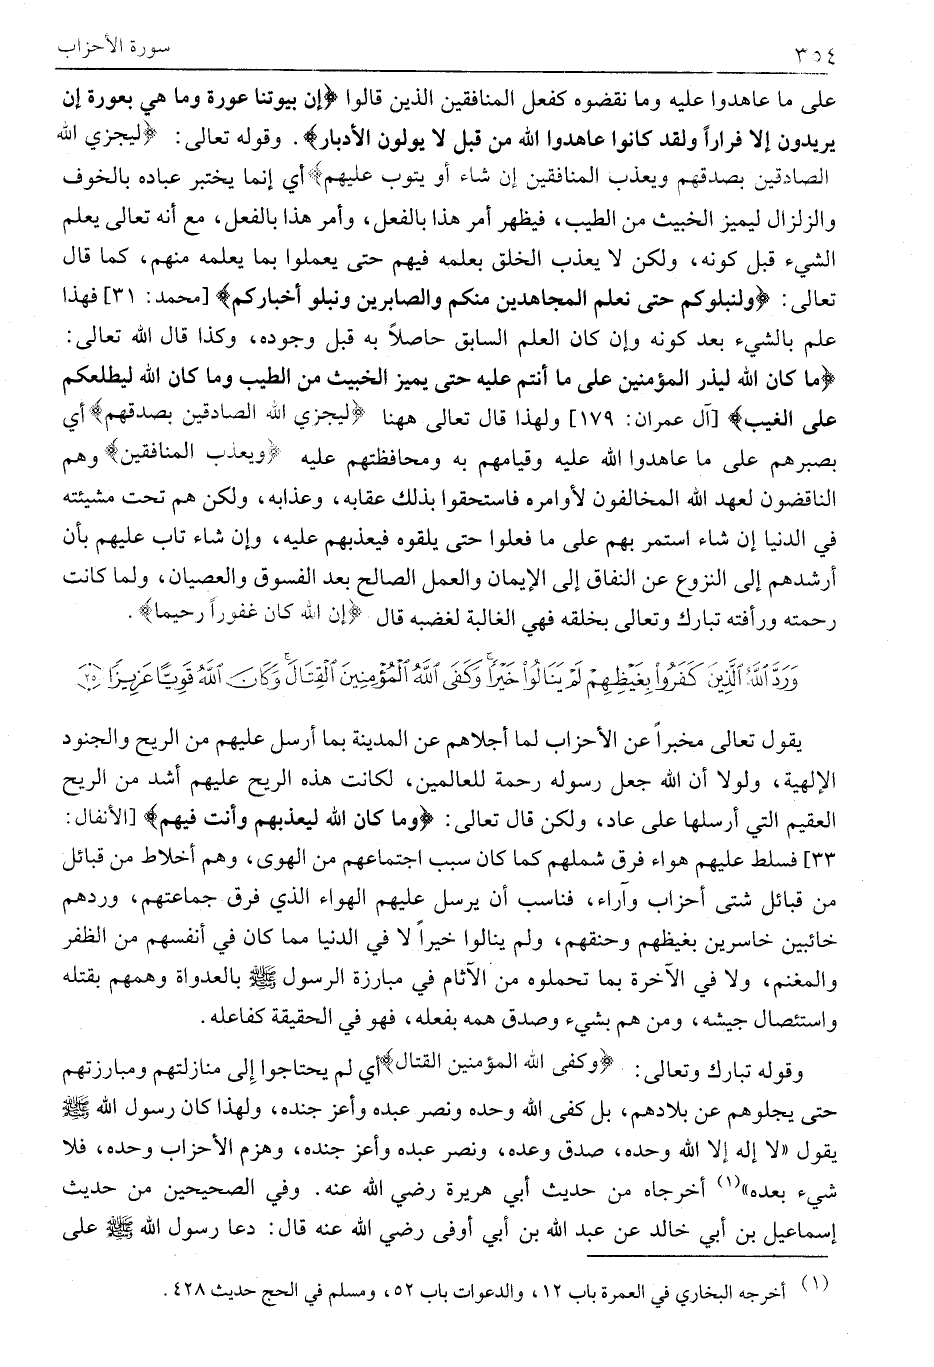 ٣٥٤
سورة الأحزاب
على ما عاهدوا عليه وما نقضوه كفعل المنافقين الذين قالوا ﴿إن بيوتنا عورة وما هي بعورة إن
يريدون إلا فراراً ولقد كانوا عاهدوا الله من قبل لا يولون الأدبار﴾. وقوله تعالى: ﴿ليجزي الله
الصادقين بصدقهم ويعذب المنافقين إن شاء أو يتوب عليهم﴾ أي إنما يختبر عباده بالخوف
والزلزال ليميز الخبيث من الطيب، فيظهر أمر هذا بالفعل، وأمر هذا بالفعل، مع أنه تعالى يعلم
الشيء قبل كونه، ولكن لا يعذب الخلق بعلمه فيهم حتى يعملوا بما يعلمه منهم، كما قال
تعالى: ﴿ولنبلوكم حتى نعلم المجاهدين منكم والصابرين ونبلو أخباركم﴾ [محمد: ٣١] فهذا
علم بالشيء بعد كونه وإن كان العلم السابق حاصلاً به قبل وجوده، وكذا قال الله تعالى:
﴿ما كان الله ليذر المؤمنين على ما أنتم عليه حتى يميز الخبيث من الطيب وما كان الله ليطلعكم
على الغيب﴾ [آل عمران: ١٧٩] ولهذا قال تعالى ههنا ﴿ليجزي الله الصادقين بصدقهم﴾ أي
بصبرهم على ما عاهدوا الله عليه وقيامهم به ومحافظتهم عليه ﴿ويعذب المنافقين﴾ وهم
الناقضون لعهد الله المخالفون لأوامره فاستحقوا بذلك عقابه، وعذابه، ولكن هم تحت مشيئته
في الدنيا إن شاء استمر بهم على ما فعلوا حتى يلقوه فيعذبهم عليه، وإن شاء تاب عليهم بأن
أرشدهم إلى النزوع عن النفاق إلى الإيمان والعمل الصالح بعد الفسوق والعصيان، ولما كانت
رحمته ورأفته تبارك وتعالى بخلقه فهي الغالبة لغضبه قال ﴿إن الله كان غفوراً رحيما﴾.
وَرَدَّ ٱللَّهُ ٱلَّذِينَ كَفَرُوا۟ بِغَيْظِهِمْ لَمْ يَنَالُوا۟ خَيْرًا ۚ وَكَفَى ٱللَّهُ ٱلْمُؤْمِنِينَ ٱلْقِتَالَ ۚ وَكَانَ ٱللَّهُ قَوِيًّا عَزِيزًا ٢٥
يقول تعالى مخبراً عن الأحزاب لما أجلاهم عن المدينة بما أرسل عليهم من الريح والجنود
الإلهية، ولولا أن الله جعل رسوله رحمة للعالمين، لكانت هذه الريح عليهم أشد من الريح
العقيم التي أرسلها على عاد، ولكن قال تعالى: ﴿وما كان الله ليعذبهم وأنت فيهم﴾ [الأنفال:
٣٣] فسلط عليهم هواء فرق شملهم كما كان سبب اجتماعهم من الهوى، وهم أخلاط من قبائل
من قبائل شتى أحزاب وآراء، فناسب أن يرسل عليهم الهواء الذي فرق جماعتهم، وردهم
خائبين خاسرين بغيظهم وحنقهم، ولم ينالوا خيراً لا في الدنيا مما كان في أنفسهم من الظفر
والمغنم، ولا في الآخرة بما تحملوه من الآثام في مبارزة الرسول ﷺ بالعدواة وهمهم بقتله
واستئصال جيشه، ومن هم بشيء وصدق همه بفعله، فهو في الحقيقة كفاعله.
وقوله تبارك وتعالى: ﴿وكفى الله المؤمنين القتال﴾ أي لم يحتاجوا إلى منازلتهم ومبارزتهم
حتى يجلوهم عن بلادهم، بل كفى الله وحده ونصر عبده وأعز جنده، ولهذا كان رسول الله ﷺ
يقول «لا إله إلا الله وحده، صدق وعده، ونصر عبده وأعز جنده، وهزم الأحزاب وحده، فلا
شيء بعده»(١) أخرجاه من حديث أبي هريرة رضي الله عنه. وفي الصحيحين من حديث
إسماعيل بن أبي خالد عن عبد الله بن أبي أوفى رضي الله عنه قال: دعا رسول الله ﷺ على
(١) أخرجه البخاري في العمرة باب ١٢، والدعوات باب ٥٢، ومسلم في الحج حديث ٤٢٨.